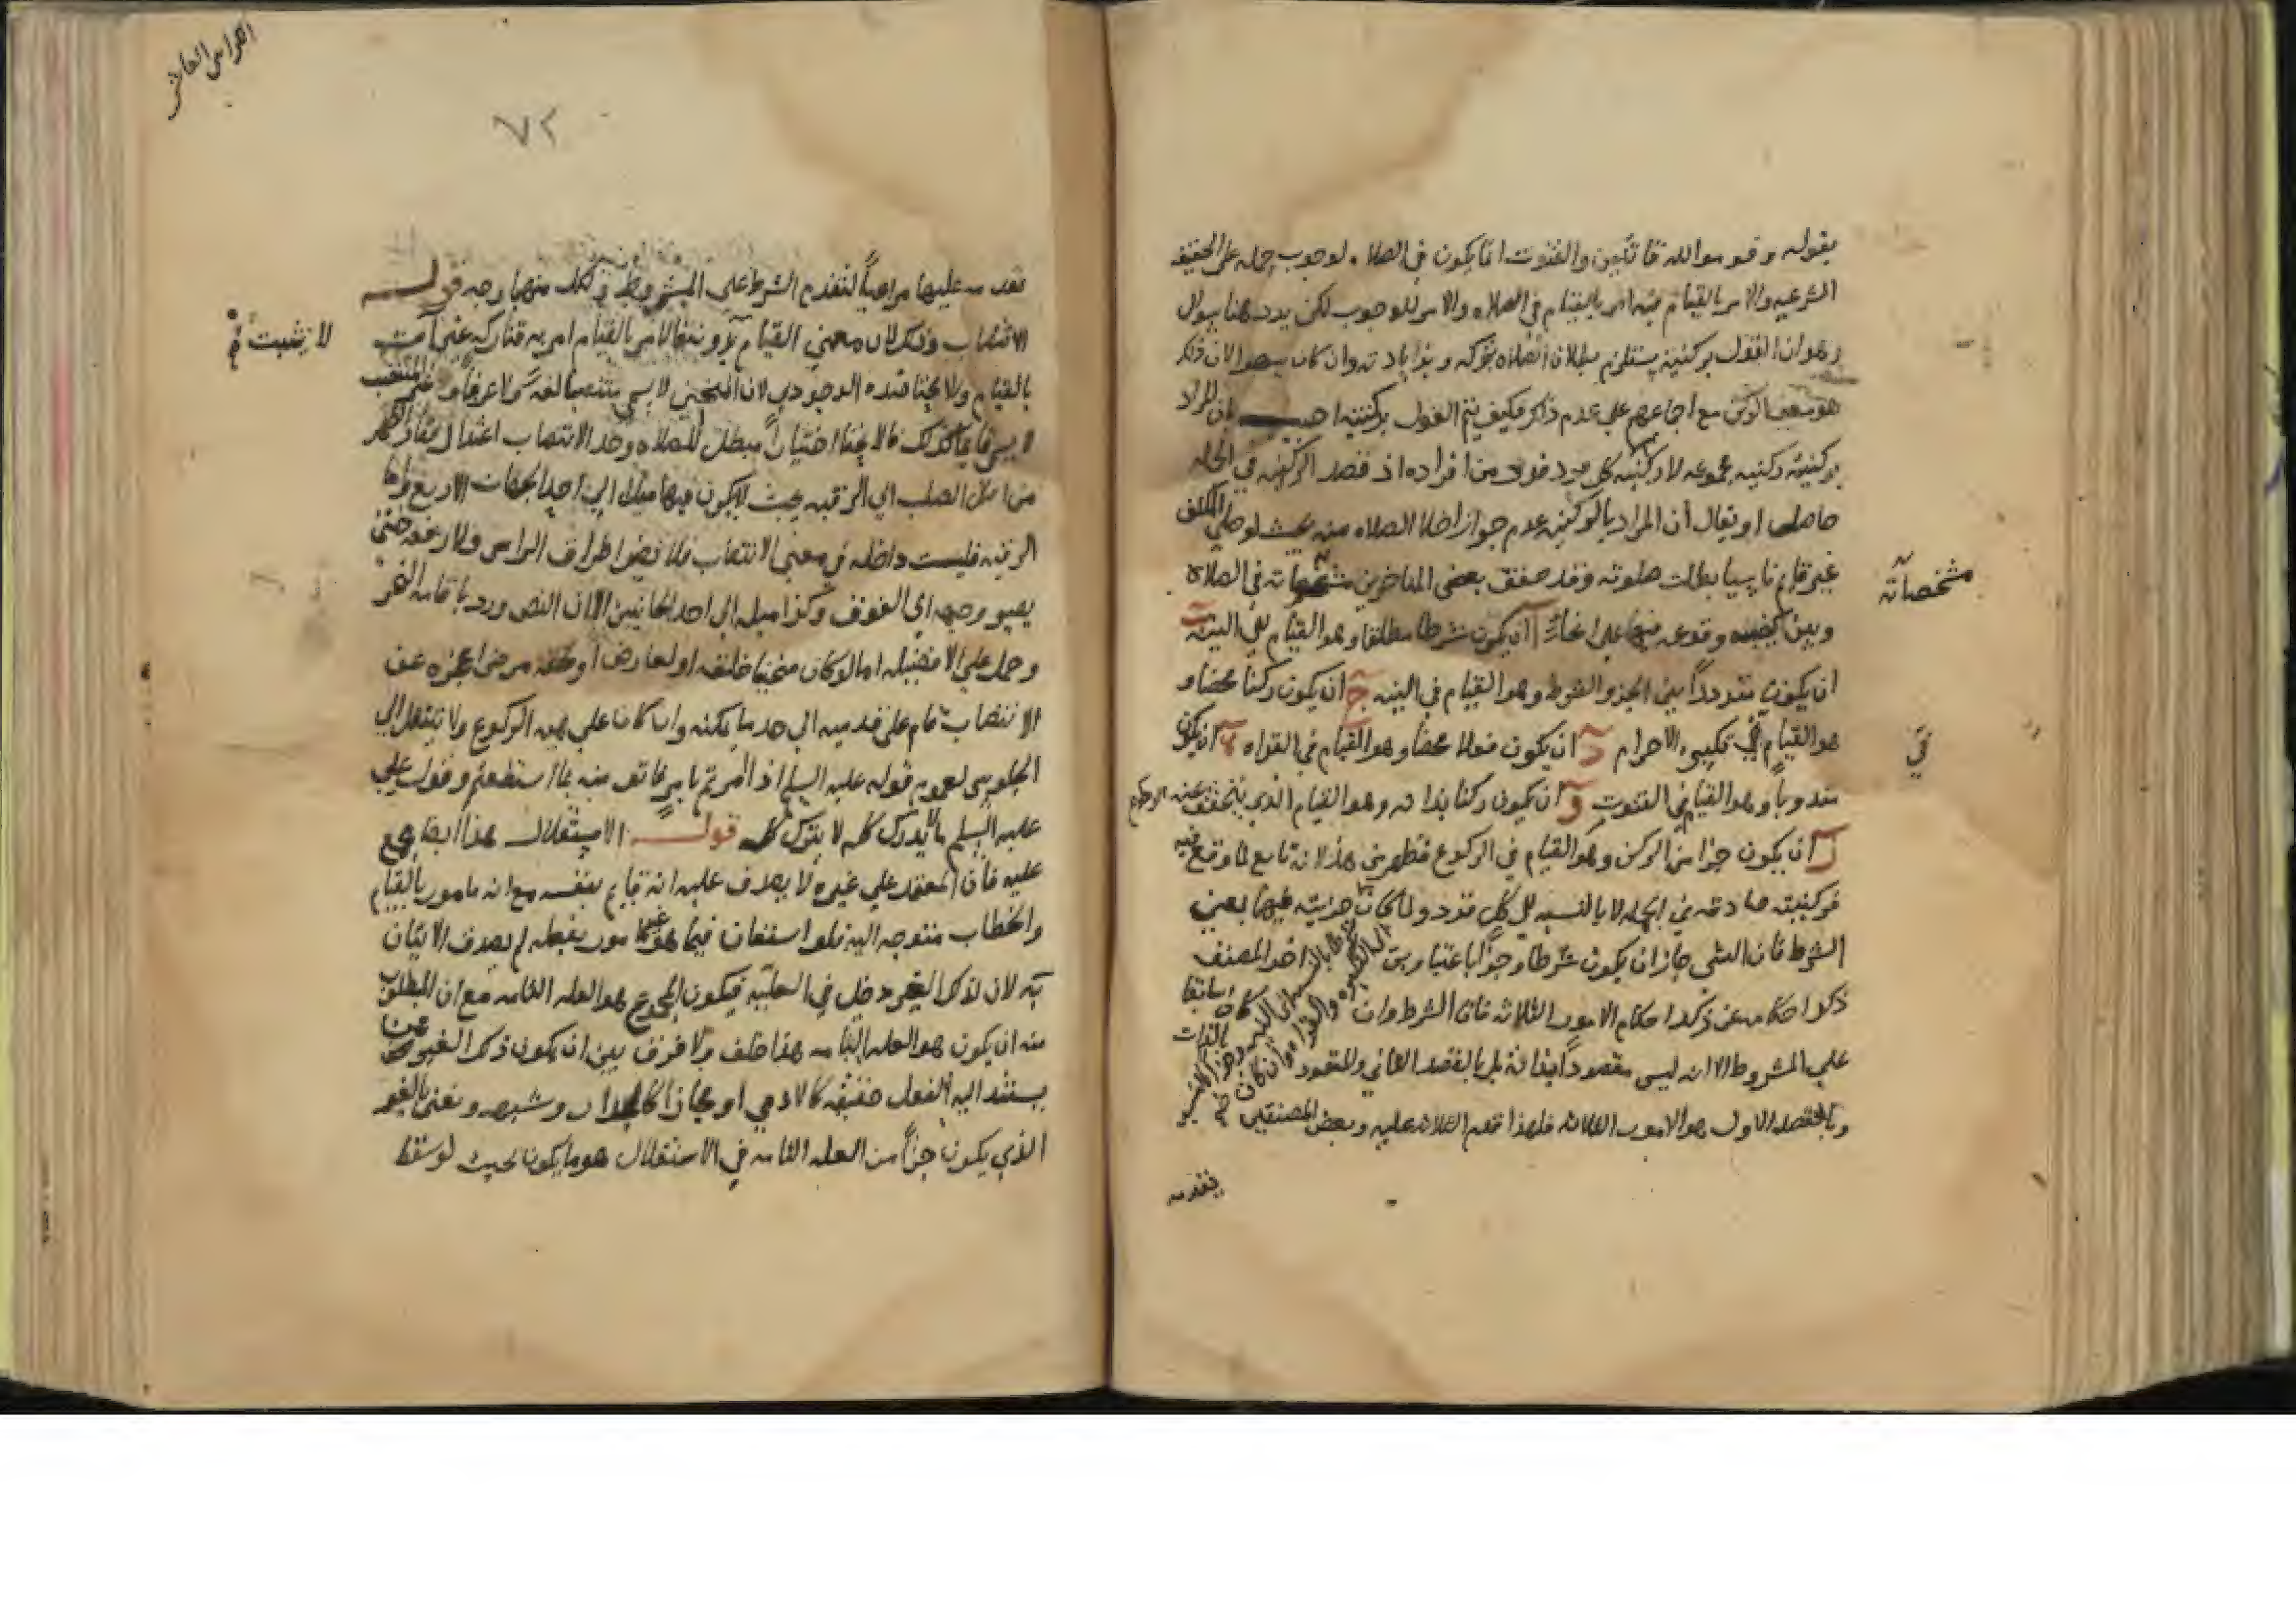 بقوله وقوموا لله قانتين والقنوت انما يكون في الصلاه لوجوب حمله على الحقيقه
الشرعيه والامر بالقيام فيه امر بالقيام في الصلاه والامر للوجوب لكن يرد هنا سوال
وهو ان القول بركنيته يستلزم بطلان الصلاه بتركه وبزيادته وان كان سهوا لان ذلك
هو معنى الركن مع اجماعهم على عدم ذلك فكيف يتم القول بركنيته اجيب بان المراد
بركنيته ركنيه مجموعه لا ركنيه كل فرد فرد من افراده اذ قصد الركنيه في الجمله
حاصل او يقال ان المراد بالركنيه عدم جواز اخلا الصلاه منه بحيث لو صلى المكلف
غير قايم ناسيا بطلت صلوته وقد حقق بعض المتاخرين مشخصاته في الصلاه
مشخصاته
وبين كيفيته وقوعه فيها على انحا آ ان يكون شرطا مطلقا وهو القيام الى النيه ب
ان يكون مترددا بين الجز والشرط وهو القيام في النيه ج ان يكون ركنا محضا و
هو القيام في تكبيره الاحرام د ان يكون فعلا محضا وهو القيام في القراه ه ان يكون
في
مندوبا وهو القيام في القنوت و ان يكون ركنا بذاته وهو القيام الذي يتحقق عنه الركوع
ز ان يكون جزا من الركن وهو القيام في الركوع فظهر من هذا لانه تابع لما وقع فيه
فركنيته صادقه في الجمله لا بالنسبه لكل فرد ولما كان جزايته فيها بمعنى
الشرط فان الشي جاز ان يكون شرطا وجزا باعتبارين اخر المصنف
ذكر احكامه عن ذكر احكام الامور الثلاثه فان الشرط وان كان سابقا
على المشروط الا انه ليس مقصودا بذاته بل بالقصد الثاني والمقصود بالذات
وبالقصد الاول هو الامور الثلاثه فلهذا قدم الثلاثه عليه وبعض المصنفين
يقدمه
٧٢
يقدمه عليها مراعياً لتقدم الشرط على المشروط في لكل منهما وجه قوله
الانتصاب وذلك لان معنى القيام
لا يثبت
بالقيام ولا يجتنا ضده الوجودي لان المنحني لا يسمى منتصبا لغه ولا عرفا و غير المنتصب
لا يسمى قايما كذلك فالانحنا اختياراً مبطل للصلاه وحد الانتصاب اعتدال فقار الظهر
من اصل الصلب الى الرقبه بحيث لا يكون فيها ميلا الى احد الجهات الاربع واما
الرقبه فليست داخله في معنى الانتصاب فلا يضر اطراق الراس ولا رفعه حتى
يصير وجهه الى الفوق وكذا ميله الى احد الجانبين الا ان النص ورد باقامه النحر
وحمل على الافضيله اما لو كان منحنيا خلقه او لعارض او لحقه مرض اعجزه عن
الانتصاب قام على قدميه الى حد ما يمكنه وان كان على هيه الركوع ولا ينتقل الى
الجلوس لعموم قوله عليه السلم اذا امرتم بامر فاتو منه بما استطعتم وقول علي
عليه السلم ما لا يدرك كله لا يترك كله قوله الاستقلال هذا ايضا مجمع
عليه فان المعتمد على غيره لا يصدق عليه انه قايم بنفسه مع انه مامور بالقيام
والخطاب متوجه اليه فلو استعان فيما هو مامور بفعله لم يصدق الاتيان
به لان لذلك الغير دخل في العليه فيكون المجموع هو العله التامه مع ان المطلوب
منه ان يكون هو العله التامه هذا خلف ولا فرق بين ان يكون ذلك الغير ممن
يستند اليه الفعل حقيقه كالادمي او مجازا كالجدار وشبهه ونعني بالغير
الذي يكون جزاً من العله التامه في الاستقلال هو ما يكون بحيث لو سقط